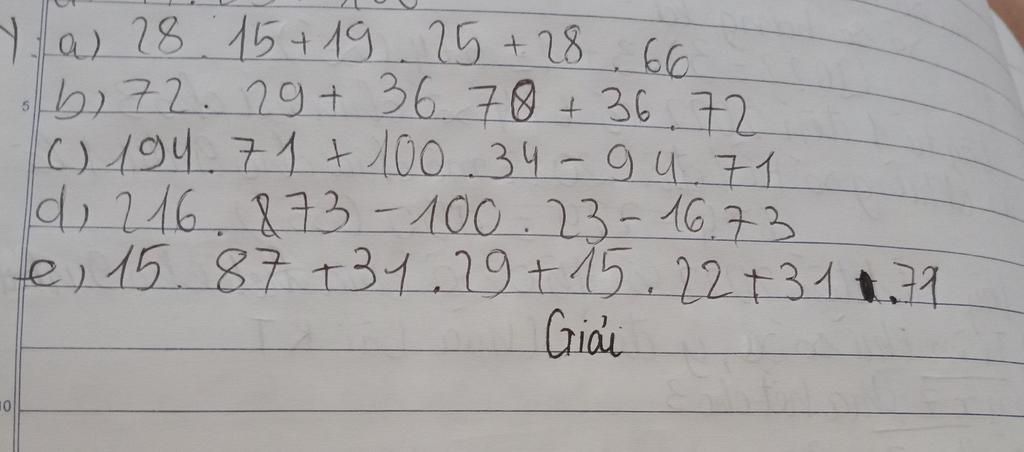 a) 28. 15 + 19. 25 + 28. 66
b) 72. 29 + 36. 78 + 36. 72
c) 194. 71 + 100. 34 - 94. 71
d) 216. 873 - 100. 23 - 16.73
e) 15. 87 + 31. 29 + 15. 22 + 31.71
Giải